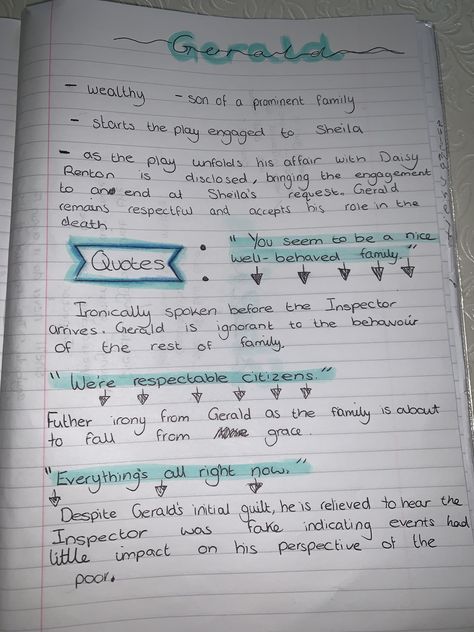 Gerald
- wealthy - son of a prominent family
- starts the play engaged to Sheila
- as the play unfolds his affair with Daisy
Renton is disclosed, bringing the engagement
to an end at Sheila's request. Gerald
remains respectful and accepts his role in the
death.
Quotes : "You seem to be a nice
well-behaved family."
Ironically spoken before the Inspector
arrives. Gerald is ignorant to the behavour
of the rest of family.
"We're respectable citizens."
Futher irony from Gerald as the family is about
to fall from grace.
"Everything's all right now."
Despite Gerald's initial guilt, he is relieved to hear the
Inspector was fake indicating events had
little impact on his perspective of the
poor.